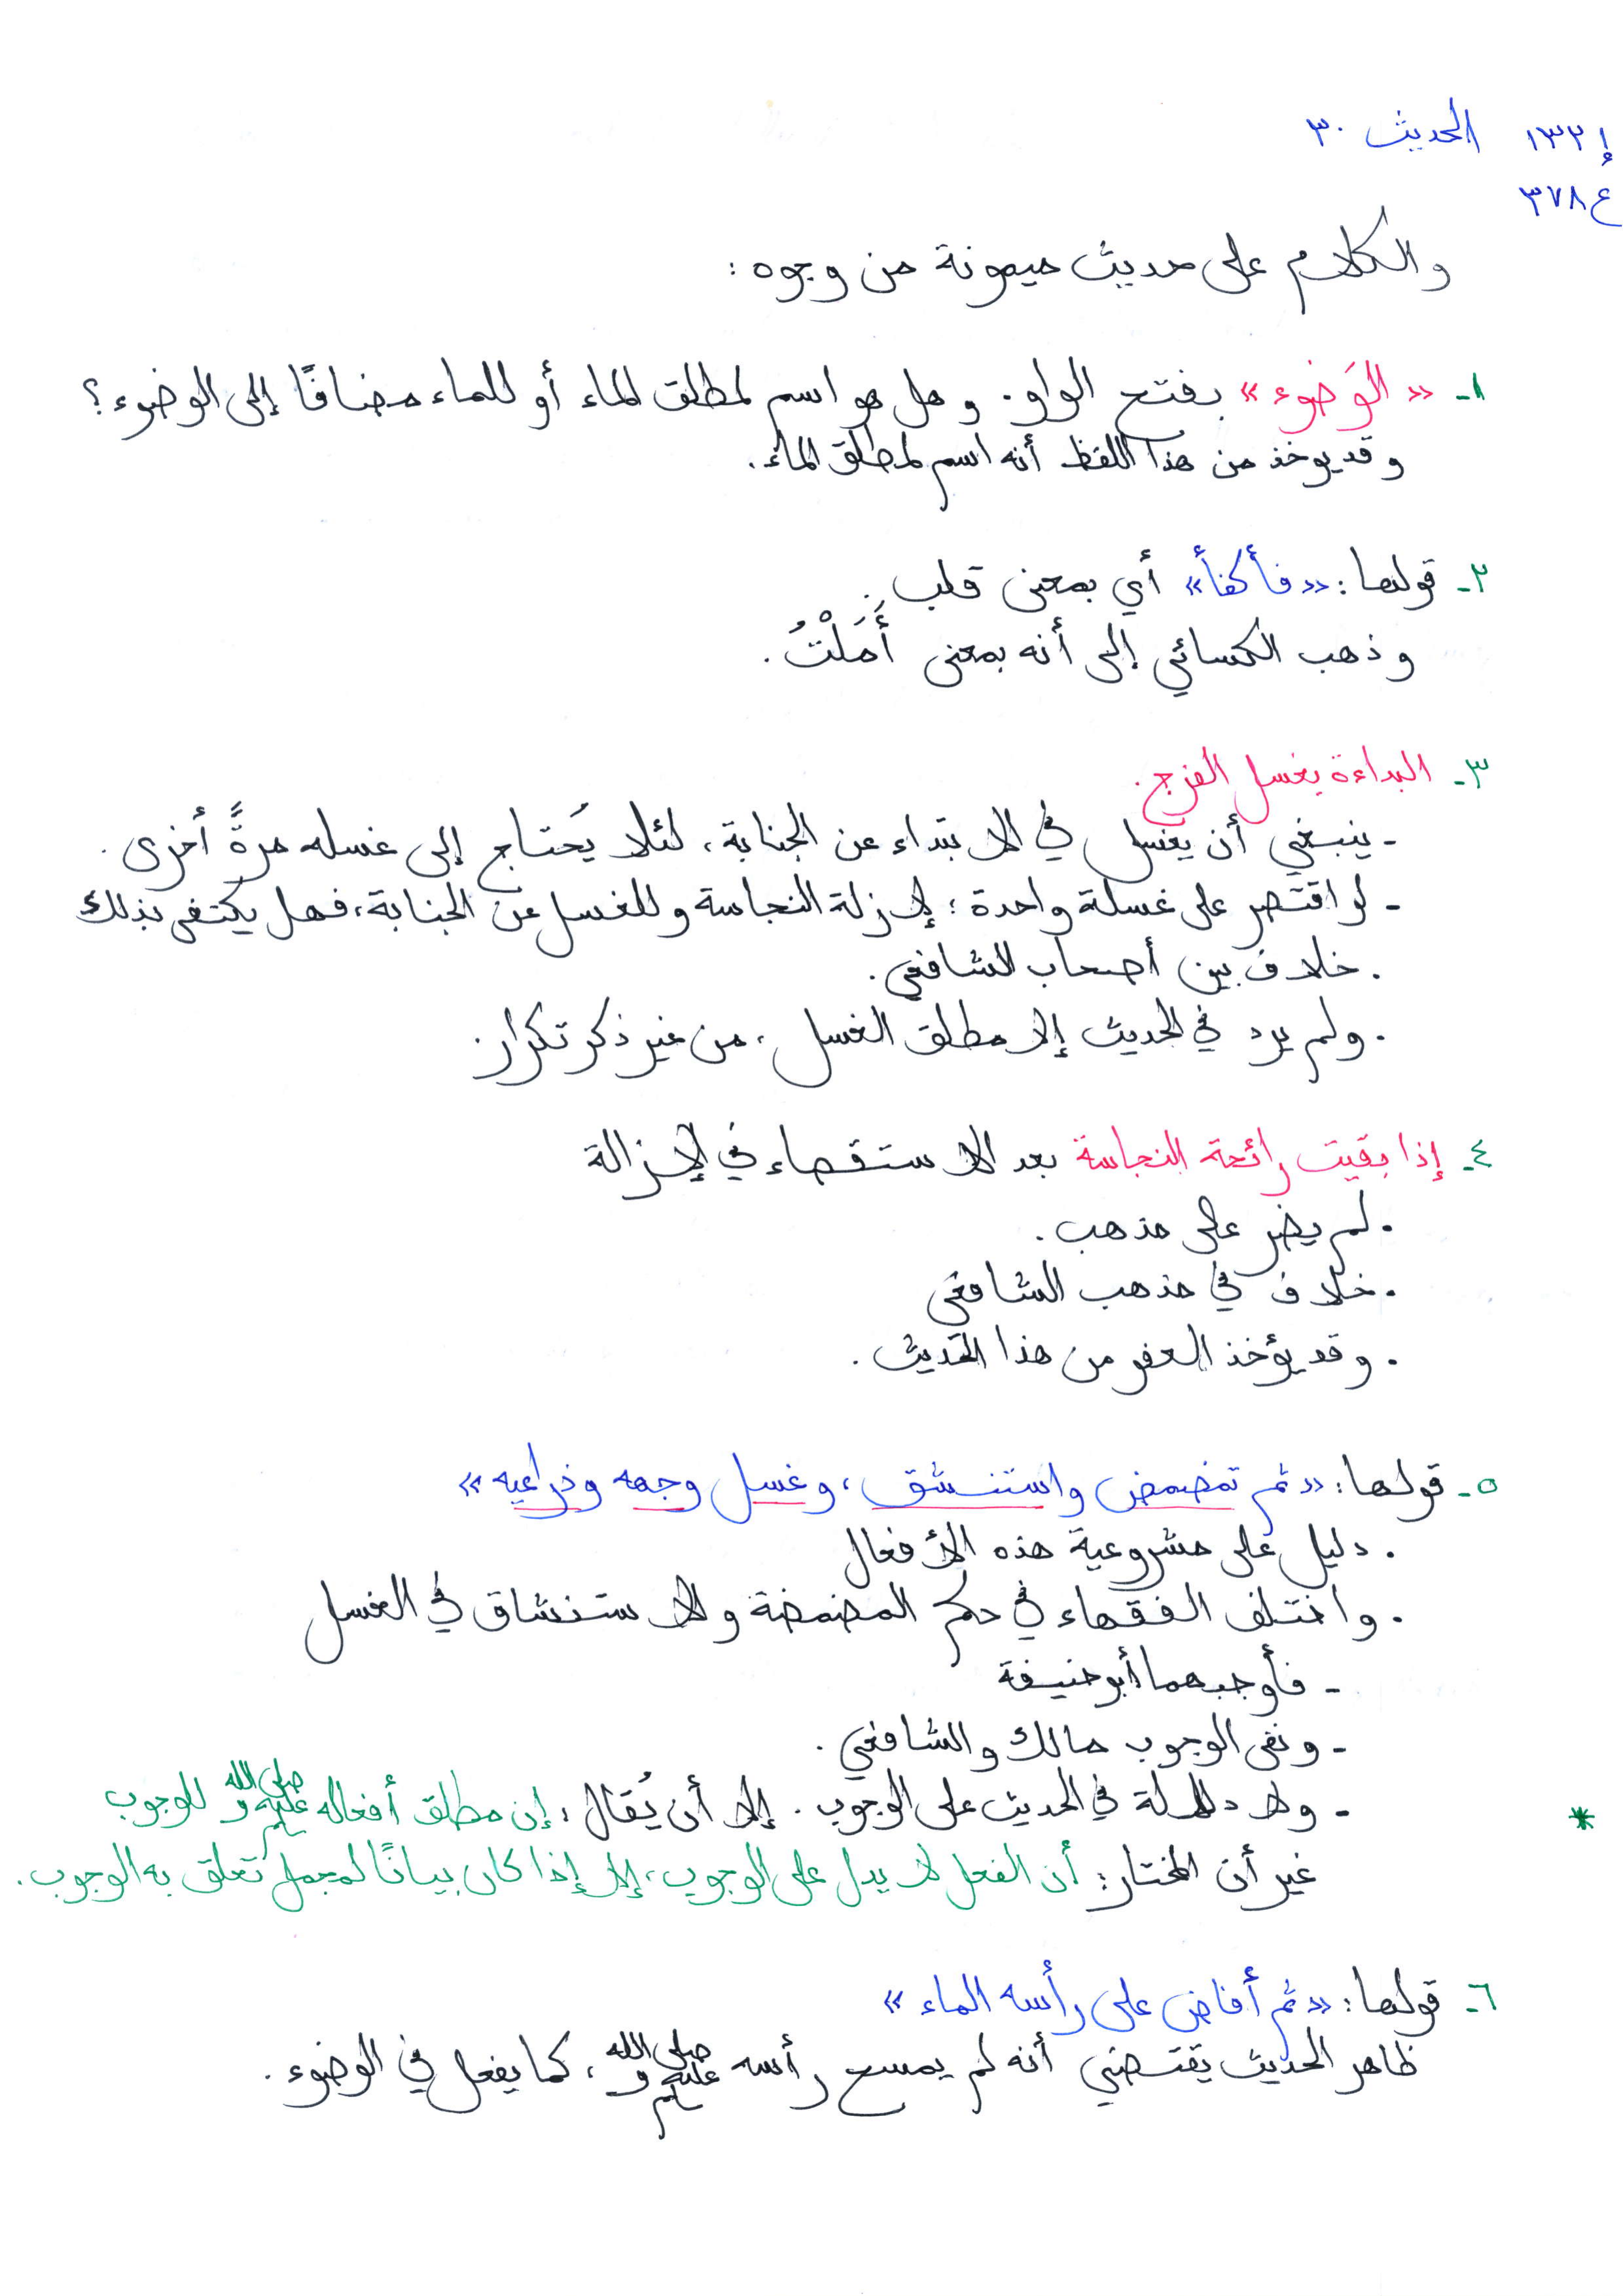 إ ١٣٢١ الحديث ٣٠
ع ٣٧٨
والكلام على حديث ميمونة من وجوه :
١- «الوَضوء» بفتح الواو. وهل هو اسم لمطلق الماء أو للماء مضافًا إلى الوضوء؟
وقد يوخذ من هذا اللفظ أنه اسم لمطلق الماء.
٢- قولها: «فأكفأ» أي بمعنى قلب.
وذهب الكسائي إلى أنه بمعنى أَمَلْتُ.
٣- البداءة بغسل الفرج.
- ينبغي أن يغسل في الابتداء عن الجنابة، لئلا يَحتاج إلى غسله مرةً أخرى.
- لو اقتصر على غسلة واحدة؛ لإزلة النجاسة وللغسل عن الجنابة، فهل يكتفى بذلك
. خلاف بين أصحاب الشافعي.
. ولم يرد في الحديث إلا مطلق الغسل، من غير ذكر تكرار.
٤- إذا بقيت رائحة النجاسة بعد الاستقصاء في الإزالة
. لم يضر على مذهب.
. خلاف في مذهب الشافعي
. وقد يؤخذ العفو من هذا الحديث.
٥- قولها: «ثم تمضمض واستنشق، وغسل وجهه وذراعيه»
. دليل على مشروعية هذه الأفعال
. واختلف الفقهاء في حكم المضمضة والاستنشاق في الغسل
- فأوجبهما أبو حنيفة
- ونفى الوجوب مالك والشافعي.
* - ولا دلالة في الحديث على الوجوب. إلا أن يُقال: إن مطلق أفعاله صلى الله عليه وسلم للوجوب
غير أن المختار: أن الفعل لا يدل على الوجوب، إلا إذا كان بيانًا لمجمل تعلق به الوجوب.
٦- قولها: «ثم أفاض على رأسه الماء»
ظاهر الحديث يقتضي أنه لم يمسح رأسه صلى الله عليه وسلم، كما يفعل في الوضوء.